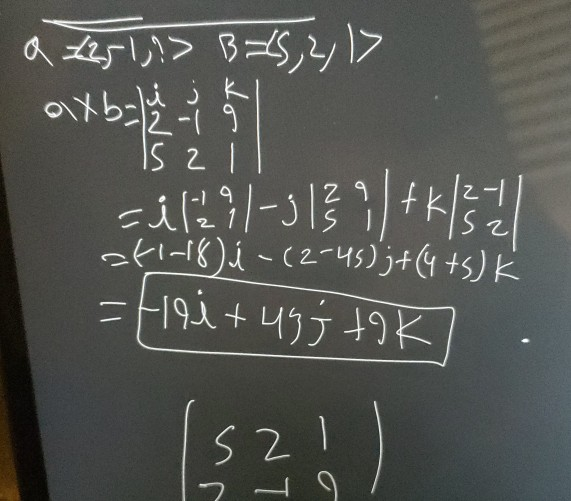 a = <2,-1,9> B = <5,2,1>
a×b = |i j k|
|2 -1 9|
|5 2 1|
= i|-1 9| - j|2 9| + k|2 -1|
|2 1| |5 1| |5 2|
= (-1-18)i - (2-45)j + (4+5)k
= -19i + 43j + 9k
(5 2 1)
2 -1 9